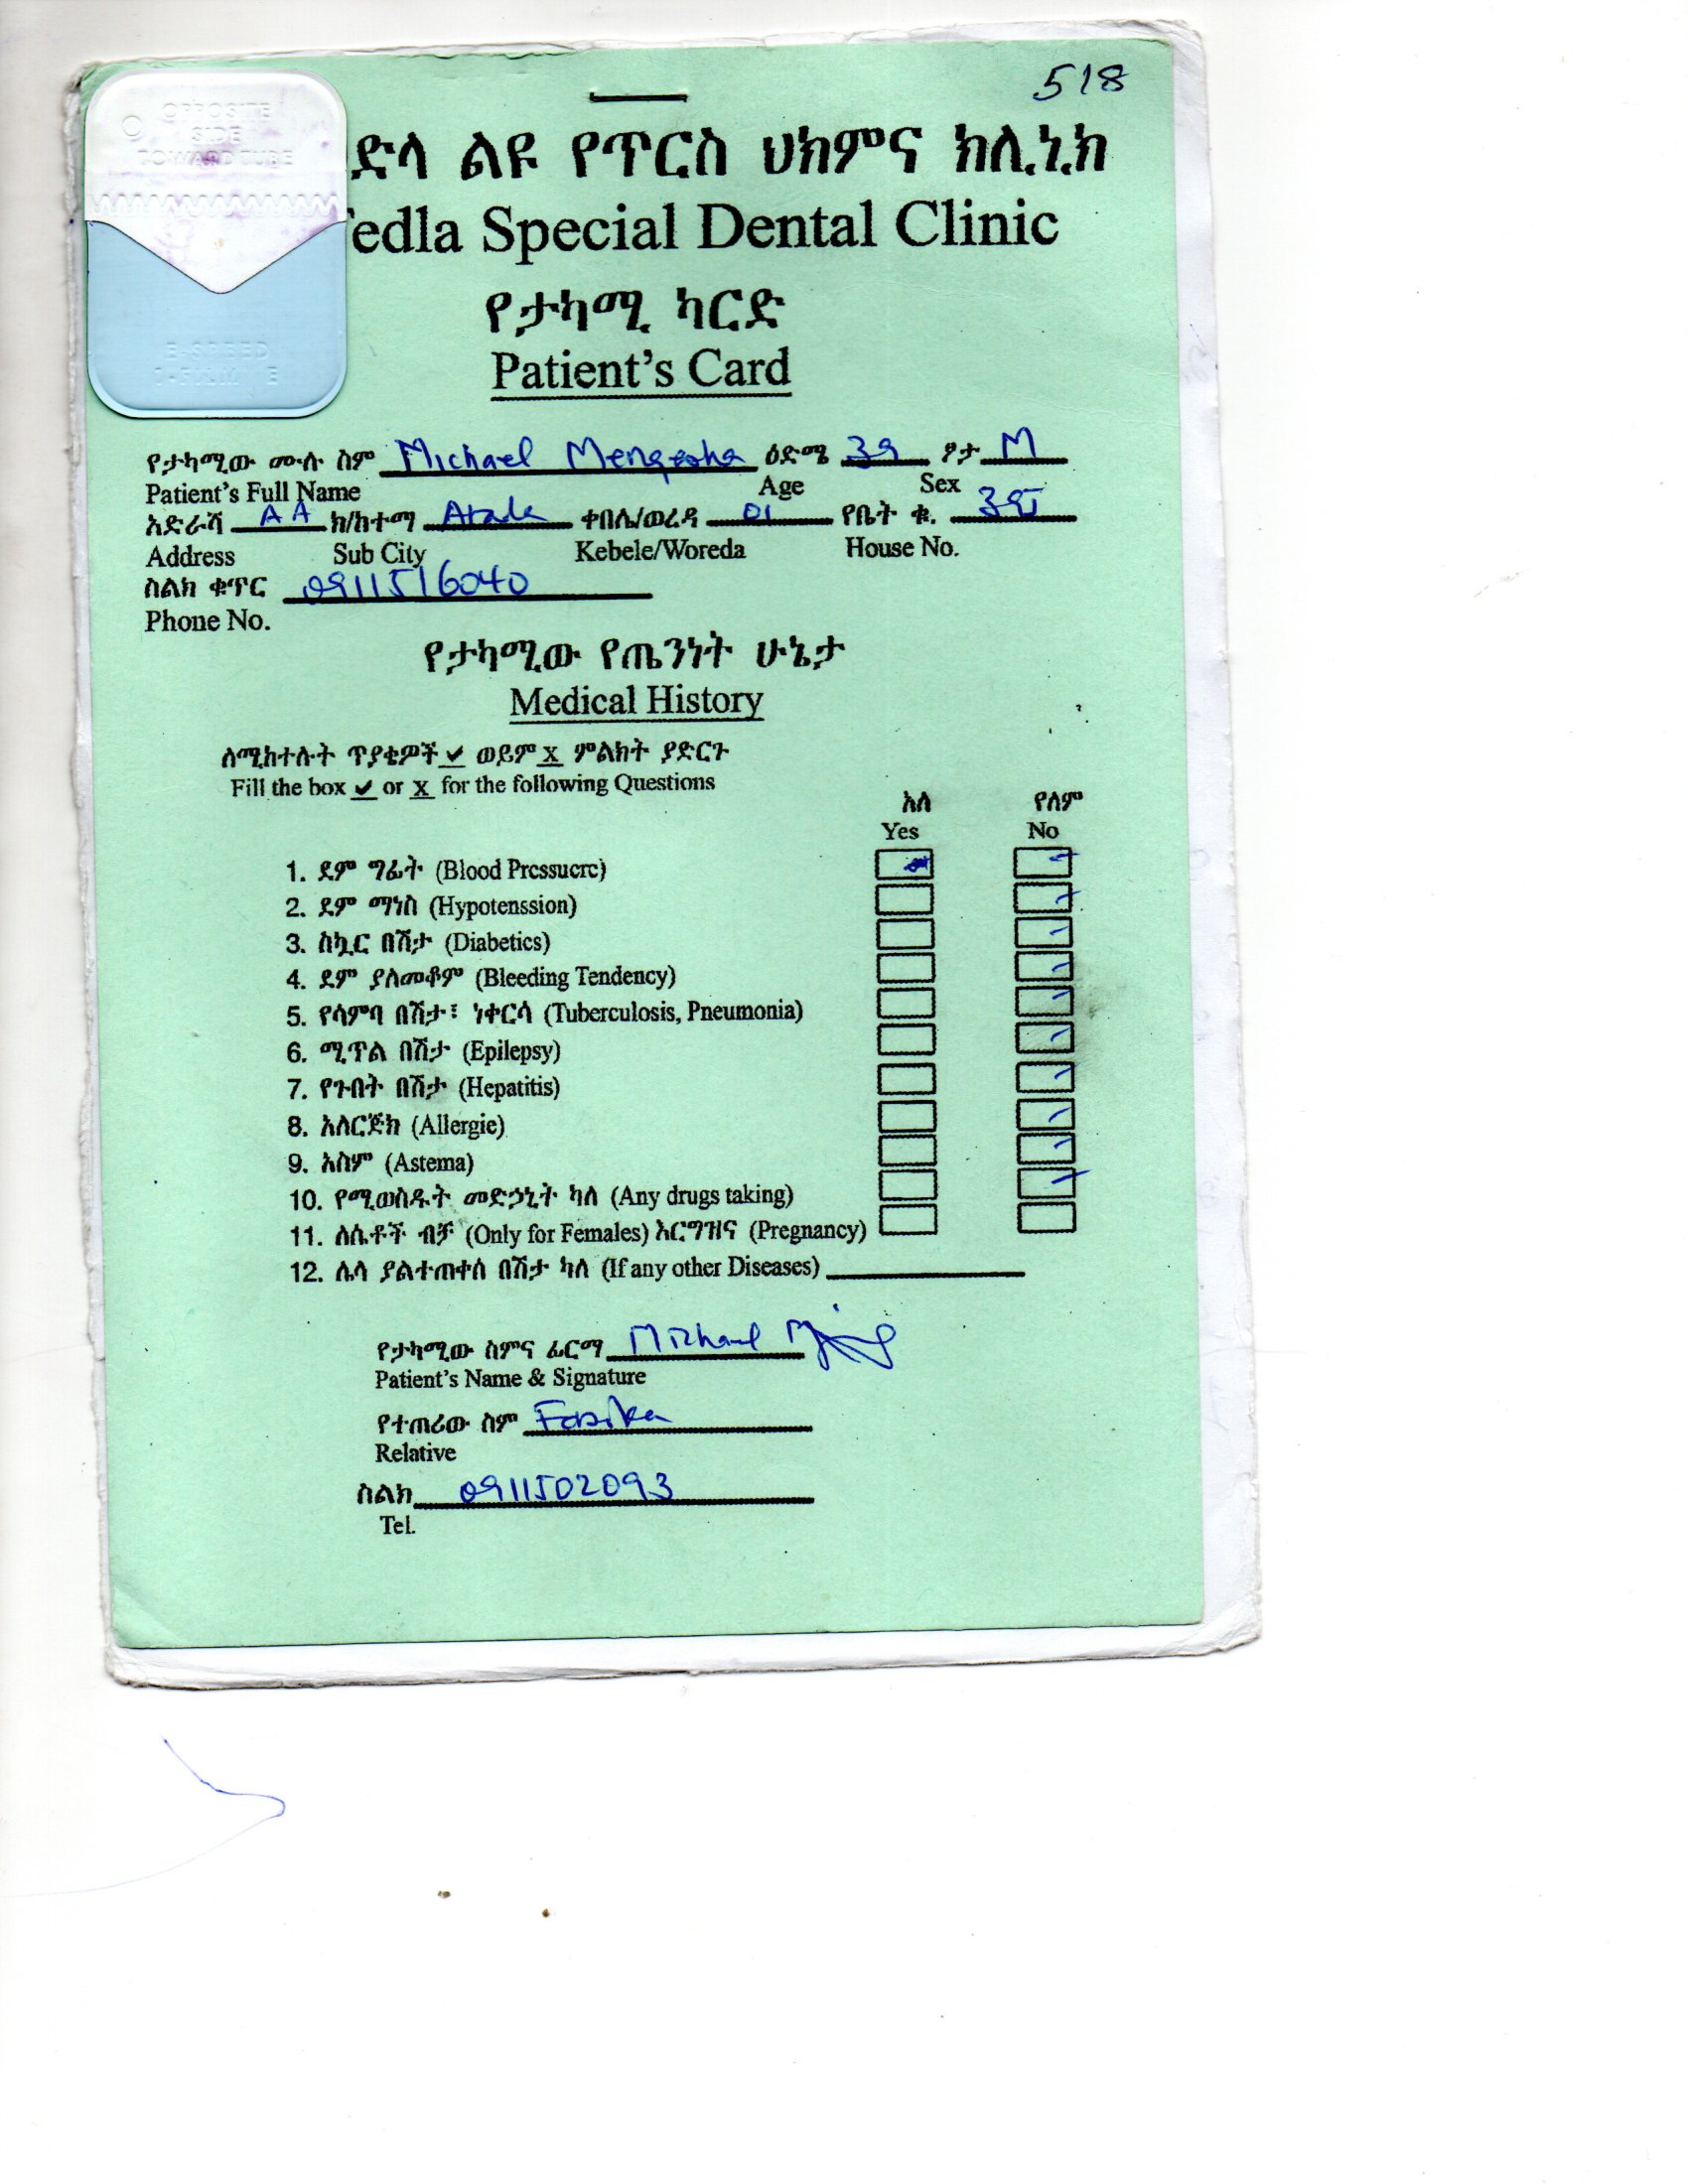 518
OPPOSITE
SIDE
TOWARD TUBE
ድላ ልዩ የጥርስ ህክምና ክሊኒክ
edla Special Dental Clinic
የታካሚ ካርድ
Patient's Card
የታካሚው ሙሉ ስም Michael Mengesha ዕድሜ 39 ፆታ M
Patient's Full Name Age Sex
አድራሻ AA ክ/ከተማ Arada ቀበሌ/ወረዳ 01 የቤት ቁ. 395
Address Sub City Kebele/Woreda House No.
ስልክ ቁጥር 0911516040
Phone No.
የታካሚው የጤንነት ሁኔታ
Medical History
ለሚከተሉት ጥያቄዎች ✓ ወይም X ምልክት ያድርጉ
Fill the box ✓ or X for the following Questions
አለ የለም
Yes No
1. ደም ግፊት (Blood Pressucre)
2. ደም ማነስ (Hypotenssion)
3. ስኳር በሽታ (Diabetics)
4. ደም ያለመቆም (Bleeding Tendency)
5. የሳምባ በሽታ፣ ነቀርሳ (Tuberculosis, Pneumonia)
6. ሚጥል በሽታ (Epilepsy)
7. የጉበት በሽታ (Hepatitis)
8. አለርጅክ (Allergie)
9. አስም (Astema)
10. የሚወስዱት መድኃኒት ካለ (Any drugs taking)
11. ለሴቶች ብቻ (Only for Females) እርግዝና (Pregnancy)
12. ሌላ ያልተጠቀሰ በሽታ ካለ (If any other Diseases)
የታካሚው ስምና ፊርማ Michael
Patient's Name & Signature
የተጠሪው ስም Fasika
Relative
ስልክ 0911502093
Tel.